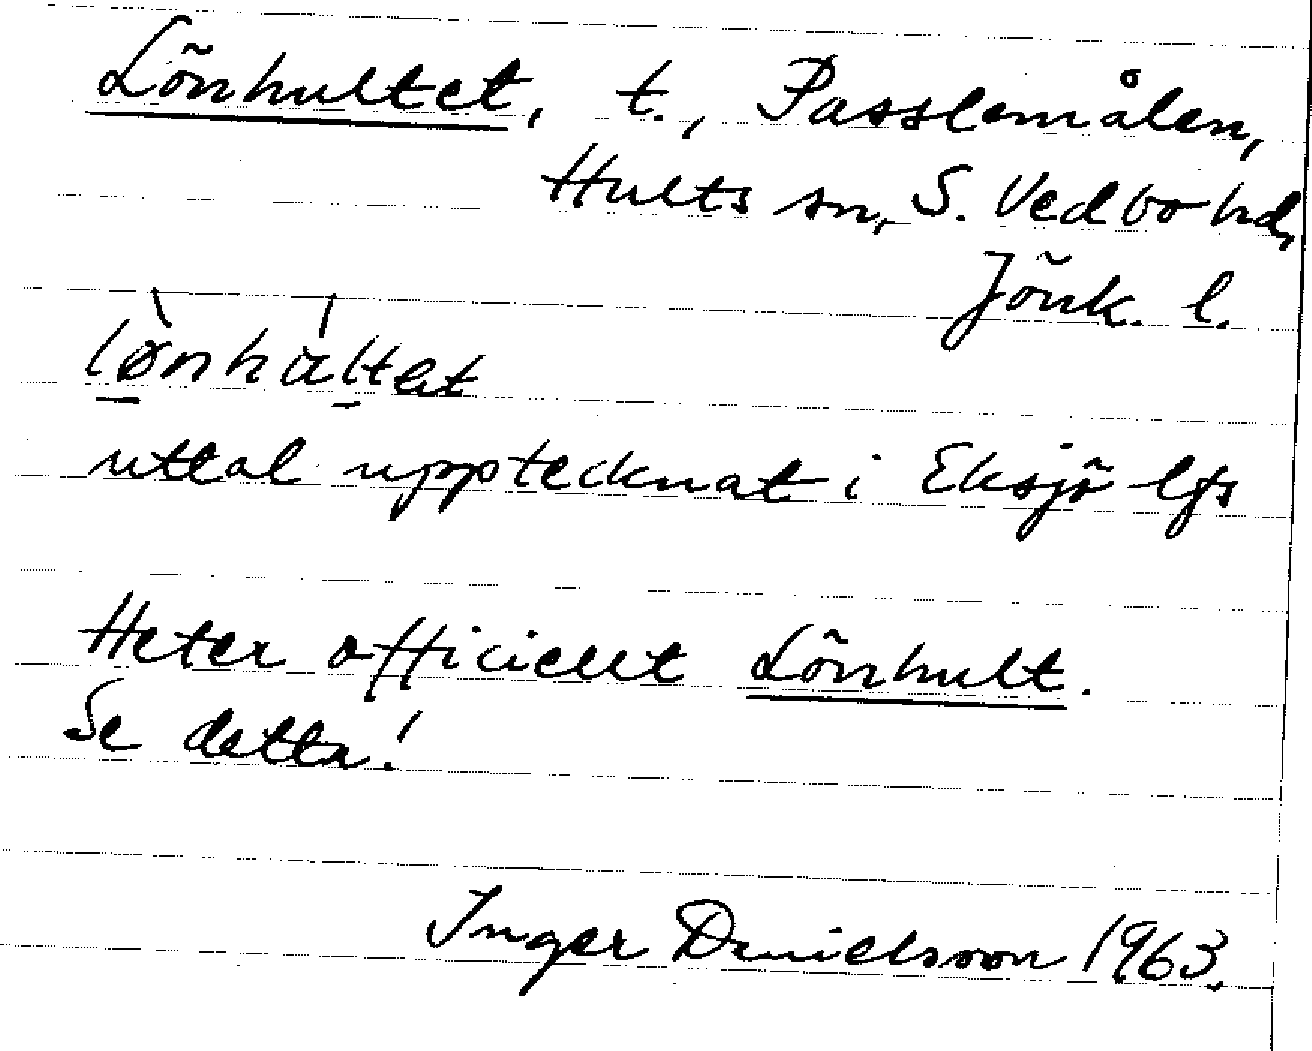 Lönhultet, t., Passlemålen,
Hults sn, S. Vedbo hd,
Jönk. l.
lø̀nhál̠tət
uttal upptecknat i Eksjö lfs
Heter officiellt Lönhult.
Se detta!
Inger Danielsson 1963.